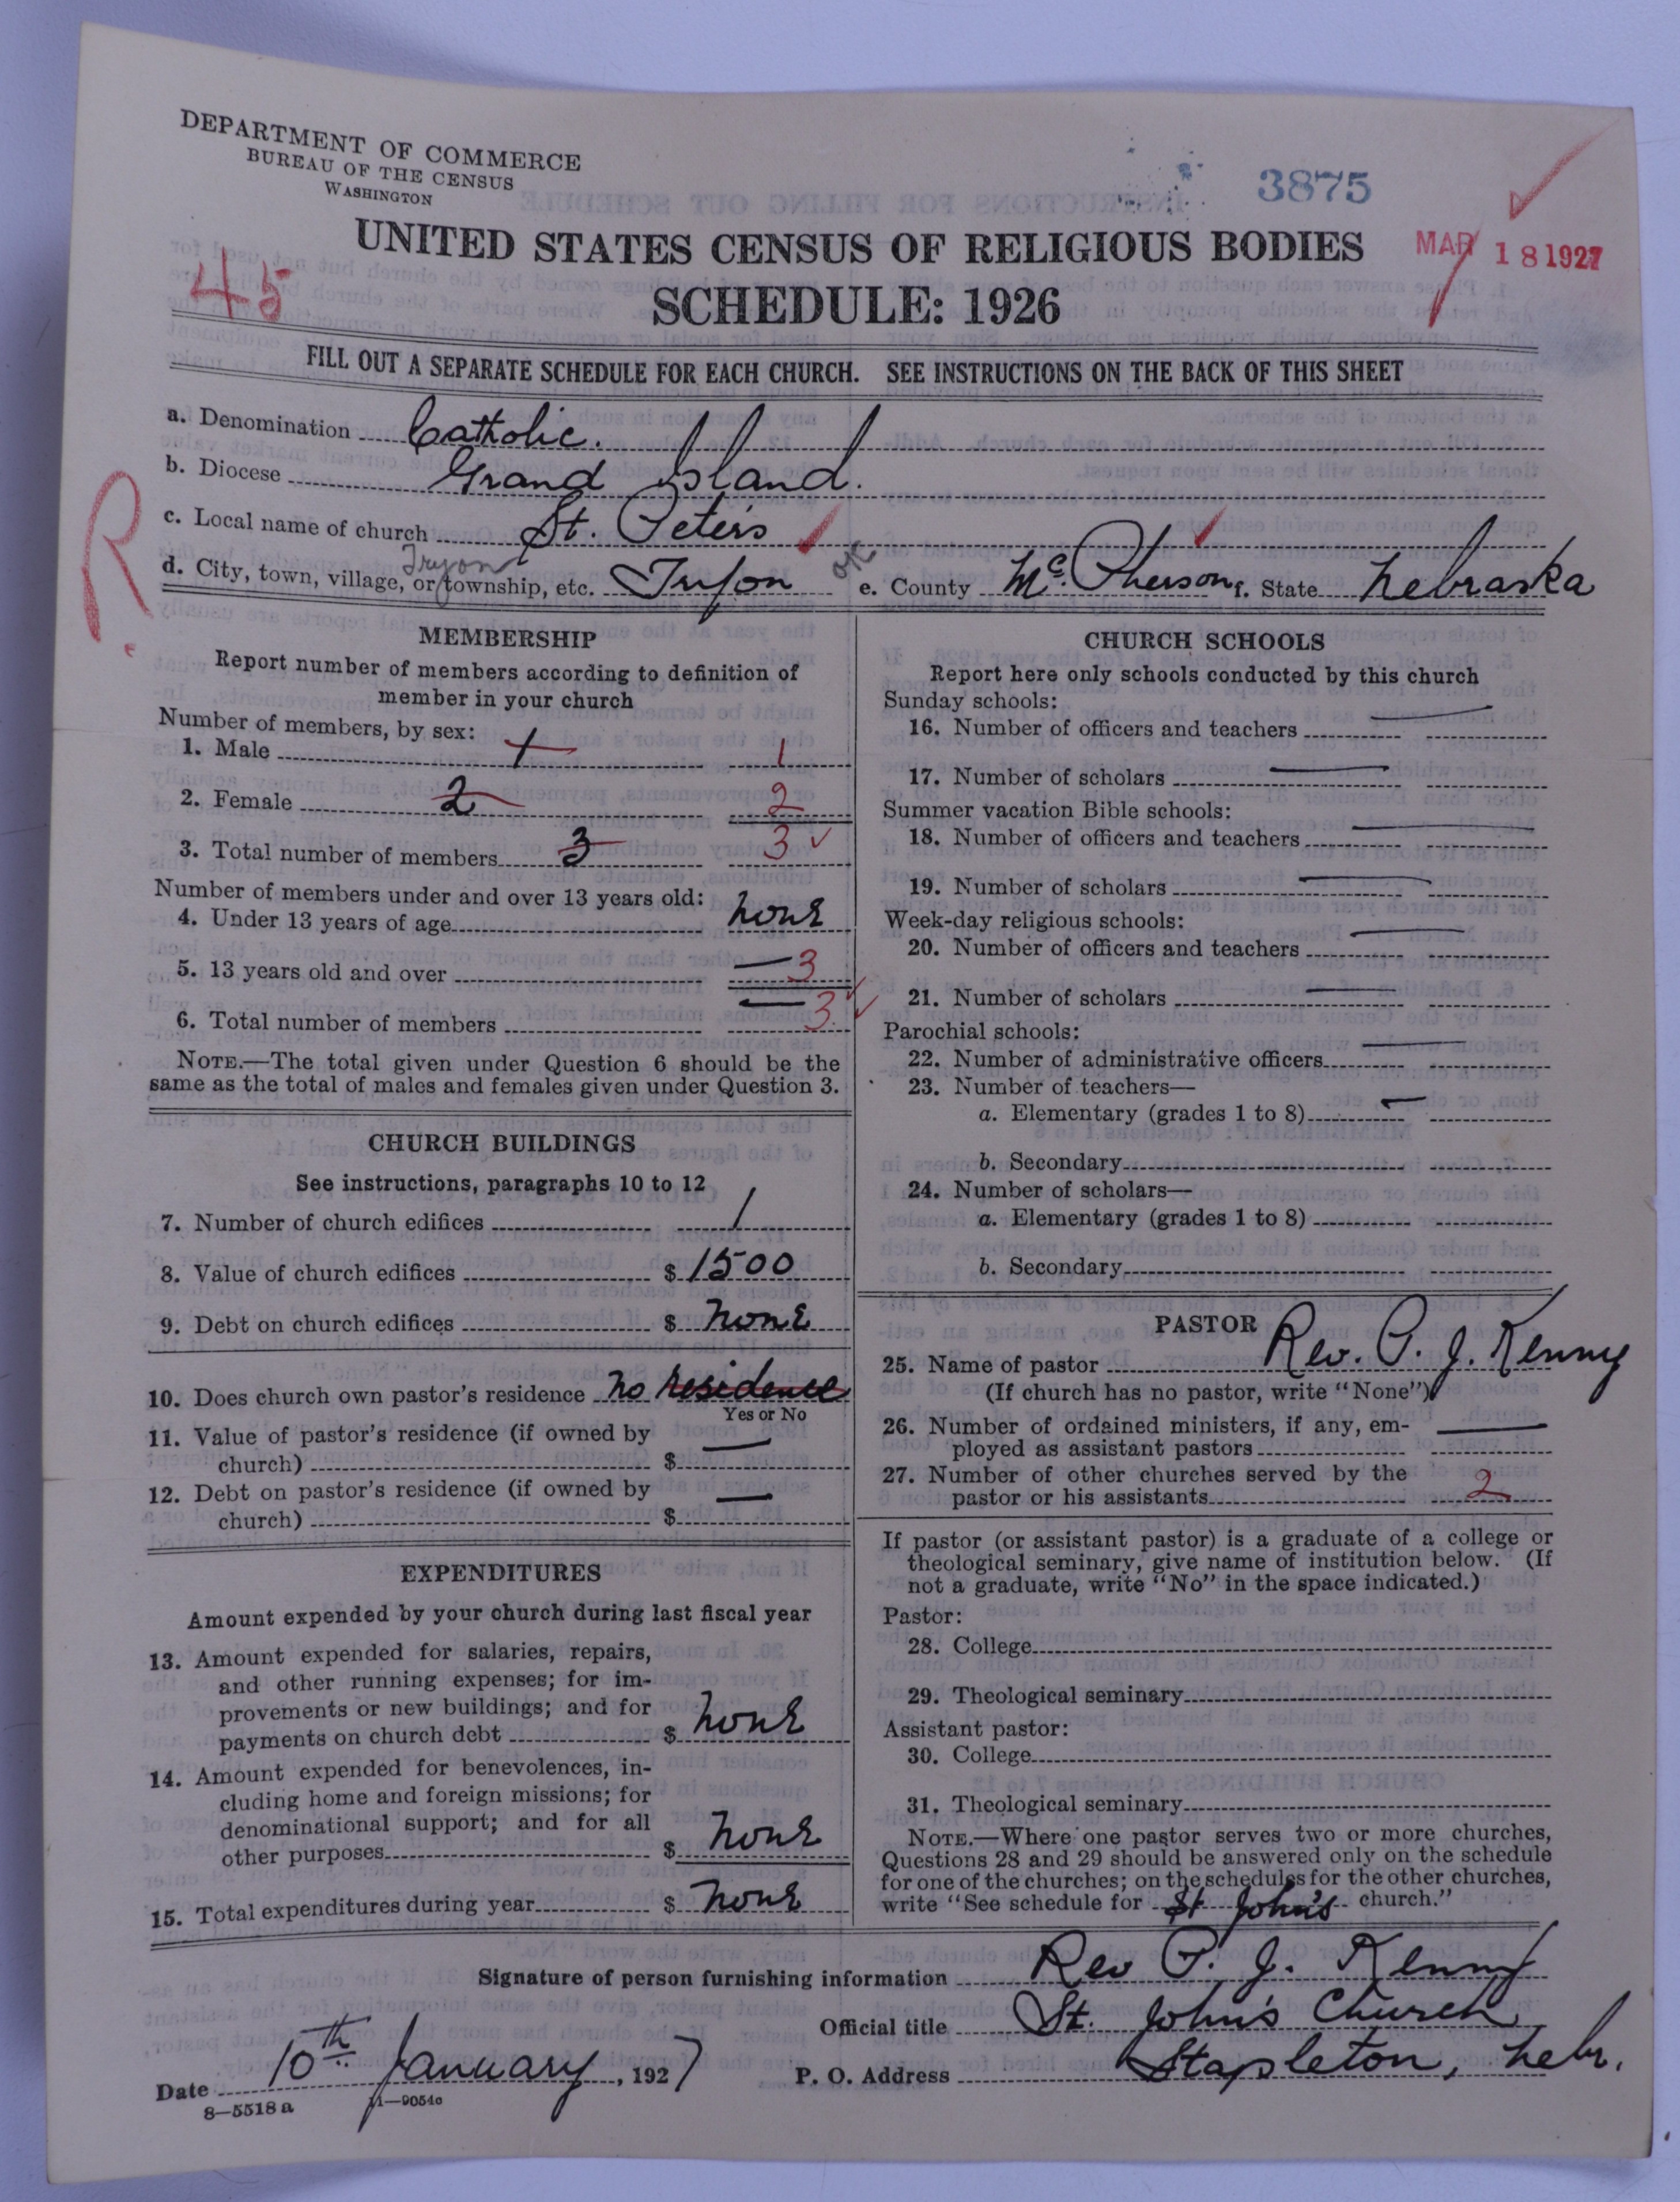 DEPARTMENT OF COMMERCE
BUREAU OF THE CENSUS
WASHINGTON
3875
UNITED STATES CENSUS OF RELIGIOUS BODIES
MAR 18 1927
45
SCHEDULE: 1926
FILL OUT A SEPARATE SCHEDULE FOR EACH CHURCH. SEE INSTRUCTIONS ON THE BACK OF THIS SHEET
a. Denomination Catholic.
b. Diocese Grand Island.
R.
c. Local name of church St. Peter's
Tryon
d. City, town, village, or township, etc. Tryon OK e. County McPherson f. State Nebraska
MEMBERSHIP
Report number of members according to definition of
member in your church
Number of members, by sex:
1. Male 1 1
2. Female 2 2
3. Total number of members 3 3
Number of members under and over 13 years old:
4. Under 13 years of age none
5. 13 years old and over — 3
6. Total number of members — 3
NOTE.—The total given under Question 6 should be the
same as the total of males and females given under Question 3.
CHURCH BUILDINGS
See instructions, paragraphs 10 to 12
7. Number of church edifices 1
8. Value of church edifices $ 1500
9. Debt on church edifices $ none
10. Does church own pastor's residence no residence
Yes or No
11. Value of pastor's residence (if owned by
church) $ —
12. Debt on pastor's residence (if owned by
church) $ —
EXPENDITURES
Amount expended by your church during last fiscal year
13. Amount expended for salaries, repairs,
and other running expenses; for im-
provements or new buildings; and for
payments on church debt $ none
14. Amount expended for benevolences, in-
cluding home and foreign missions; for
denominational support; and for all
other purposes $ none
15. Total expenditures during year $ none
CHURCH SCHOOLS
Report here only schools conducted by this church
Sunday schools:
16. Number of officers and teachers —
17. Number of scholars —
Summer vacation Bible schools:
18. Number of officers and teachers —
19. Number of scholars —
Week-day religious schools:
20. Number of officers and teachers —
21. Number of scholars —
Parochial schools:
22. Number of administrative officers —
23. Number of teachers—
a. Elementary (grades 1 to 8) —
b. Secondary
24. Number of scholars—
a. Elementary (grades 1 to 8)
b. Secondary
PASTOR
25. Name of pastor Rev. P. J. Kenny
(If church has no pastor, write "None")
26. Number of ordained ministers, if any, em-
ployed as assistant pastors —
27. Number of other churches served by the
pastor or his assistants 2
If pastor (or assistant pastor) is a graduate of a college or
theological seminary, give name of institution below. (If
not a graduate, write "No" in the space indicated.)
Pastor:
28. College
29. Theological seminary
Assistant pastor:
30. College
31. Theological seminary
NOTE.—Where one pastor serves two or more churches,
Questions 28 and 29 should be answered only on the schedule
for one of the churches; on the schedules for the other churches,
write "See schedule for St John's church."
Signature of person furnishing information Rev P. J. Kenny
Official title St. John's Church
Date 10th January, 1927 P. O. Address Stapleton, Nebr.
8—5518 a 11—9054a